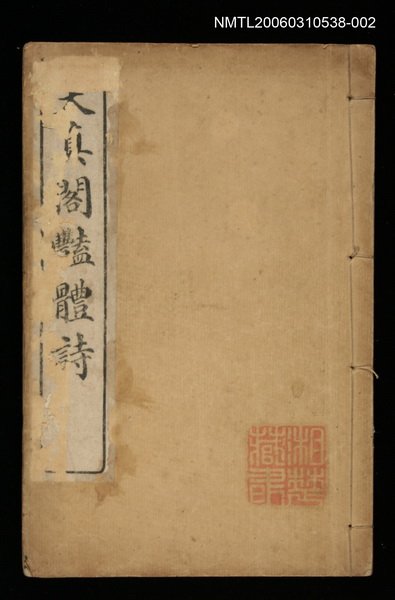 NMTL20060310538-002
真閣豔體詩